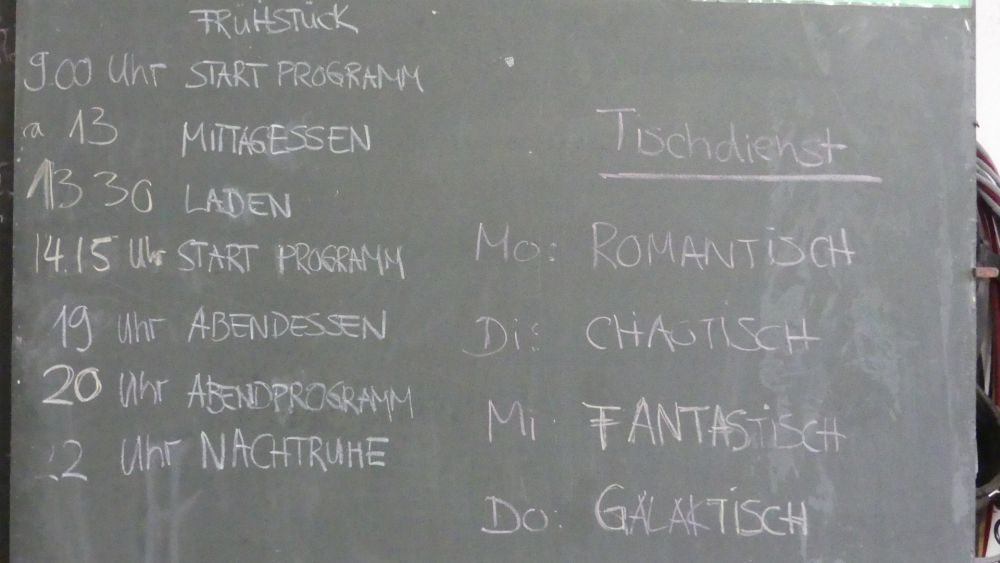 FRÜHSTÜCK
9.00 Uhr START PROGRAMM
a 13 MITTAGESSEN
13 30 LADEN
14.15 Uhr START PROGRAMM
19 Uhr ABENDESSEN
20 Uhr ABENDPROGRAMM
22 Uhr NACHTRUHE
Tischdienst
Mo: ROMANTISCH
Di: CHAOTISCH
Mi: FANTASTISCH
Do: GALAKTISCH